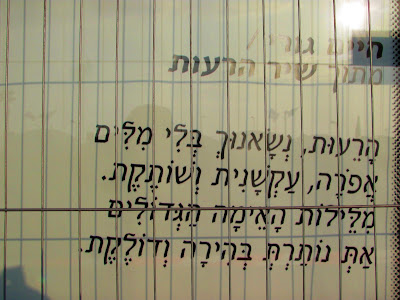 חיים גורי /
מתוך שיר הרעות
הָרֵעוּת, נְשָׂאנוּךְ בְּלִי מִלִּים
אֲפֹרָה, עַקְשָׁנִית וְשׁוֹתֶקֶת.
מִלֵּילוֹת הָאֵימָה הַגְּדוֹלִים
אַתְּ נוֹתַרְתְּ בְּהִירָה וְדוֹלֶקֶת.